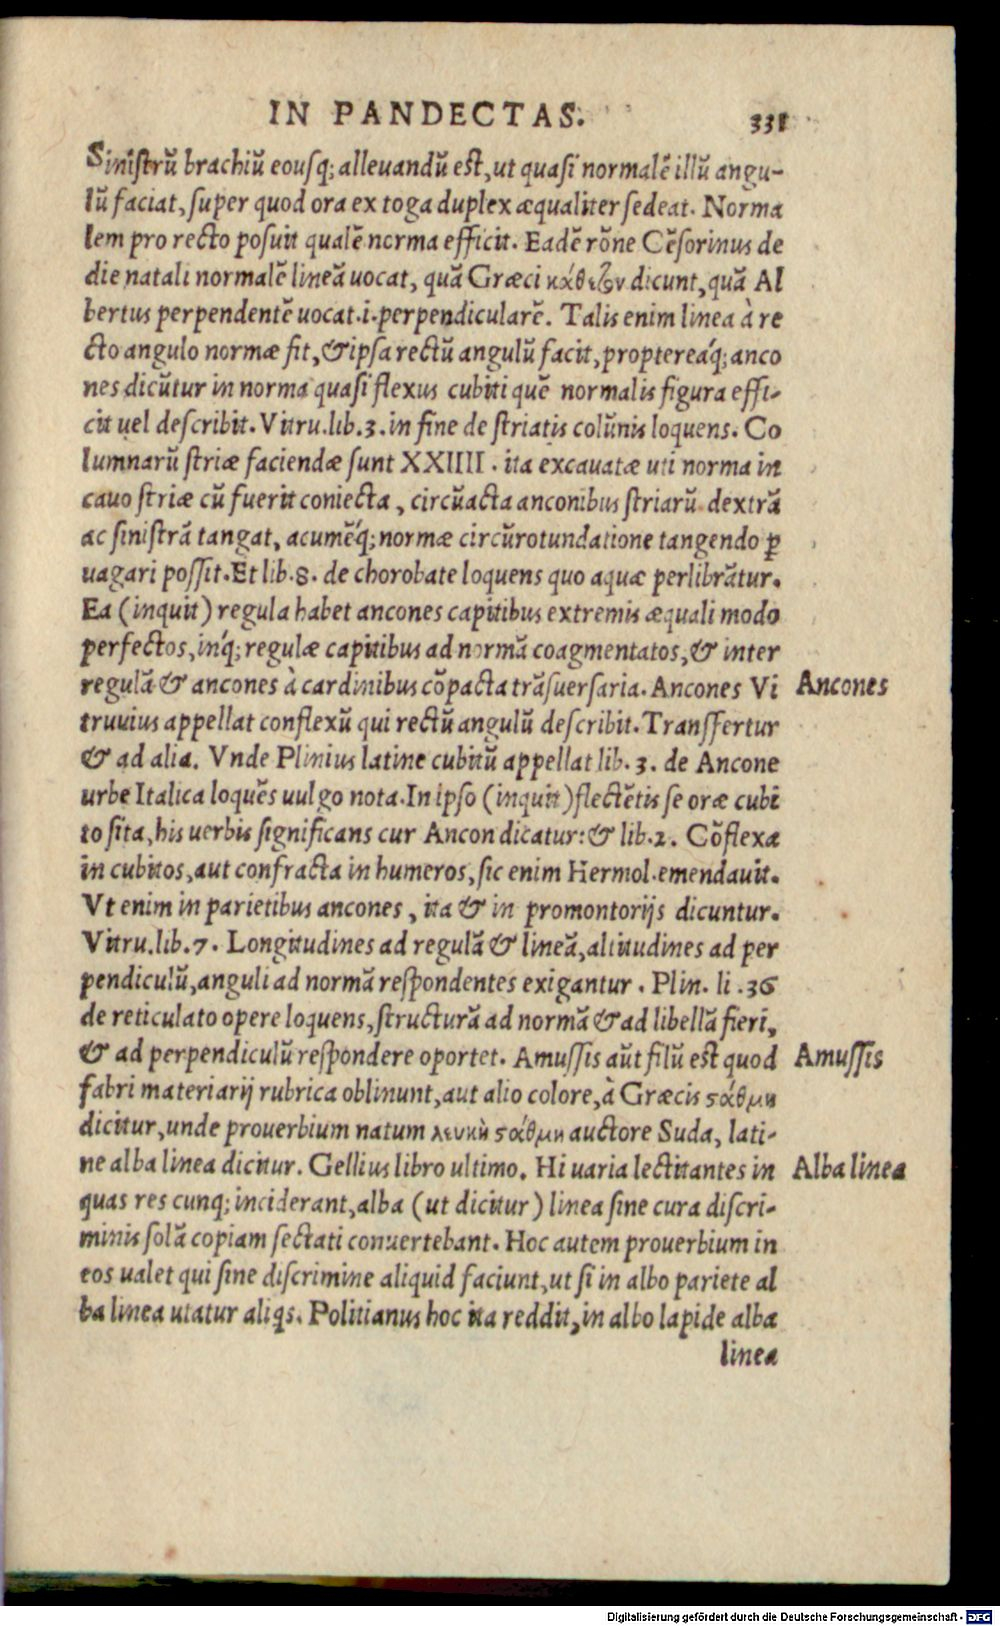 IN PANDECTAS. 331
Sinistrũ brachiũ eousq; alleuandũ est, ut quasi normalẽ illũ angu-
lũ faciat, super quod ora ex toga duplex æqualiter sedeat. Norma
lem pro recto posuit qualẽ norma efficit. Eadẽ rõne Cẽsorinus de
die natali normalẽ lineã uocat, quã Græci κάθετον dicunt, quã Al
bertus perpendentẽ uocat .i. perpendicularẽ. Talis enim linea à re
cto angulo normæ fit, & ipsa rectũ angulũ facit, proptereáq; anco
nes dicũtur in norma quasi flexus cubiti quẽ normalis figura effi-
cit uel describit. Vitru. lib. 3. in fine de striatis colũnis loquens. Co
lumnarũ striæ faciendæ sunt XXIIII. ita excauatæ uti norma in
cauo striæ cũ fuerit coniecta, circũacta anconibus striarũ dextrã
ac sinistrã tangat, acumẽq́; normæ circũrotundatione tangendo ꝑ
uagari possit. Et lib. 8. de chorobate loquens quo aquæ perlibrãtur.
Ea (inquit) regula habet ancones capitibus extremis æquali modo
perfectos, inq́; regulæ capitibus ad normã coagmentatos, & inter
regulã & ancones à cardinibus cõpacta trãsuersaria. Ancones Vi
Ancones
truuius appellat conflexũ qui rectũ angulũ describit. Transfertur
& ad alia. Vnde Plinius latine cubitũ appellat lib. 3. de Ancone
urbe Italica loquẽs uulgo nota. In ipso (inquit) flectẽtis se oræ cubi
to sita, his uerbis significans cur Ancon dicatur: & lib. 2. Cõflexa
in cubitos, aut confracta in humeros, sic enim Hermol. emendauit.
Vt enim in parietibus ancones, ita & in promontorijs dicuntur.
Vitru. lib. 7. Longitudines ad regulã & lineã, altitudines ad per
pendiculũ, anguli ad normã respondentes exigantur. Plin. li. 36
de reticulato opere loquens, structurã ad normã & ad libellã fieri,
& ad perpendiculũ respondere oportet. Amussis aũt filũ est quod
Amussis
fabri materiarij rubrica oblinunt, aut alio colore, à Græcis ϛάθμη
dicitur, unde prouerbium natum λευκὴ ϛάθμη auctore Suda, lati-
ne alba linea dicitur. Gellius libro ultimo. Hi uaria lectitantes in
Alba linea
quas res cunq; inciderant, alba (ut dicitur) linea sine cura discri-
minis solã copiam sectati conuertebant. Hoc autem prouerbium in
eos ualet qui sine discrimine aliquid faciunt, ut si in albo pariete al
ba linea utatur aliqs. Politianus hoc ita reddit, in albo lapide alba
linea
Digitalisierung gefördert durch die Deutsche Forschungsgemeinschaft - DFG